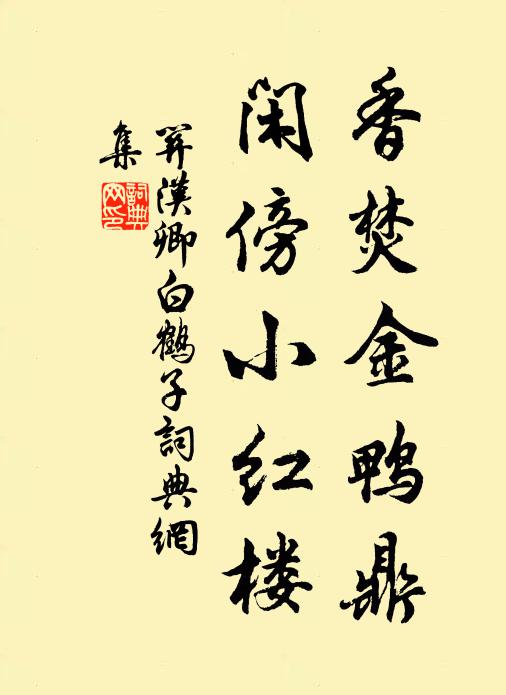 香焚金鸭鼎
闲傍小红楼
关漢卿白鶴子詞典網
集
詞典
网印